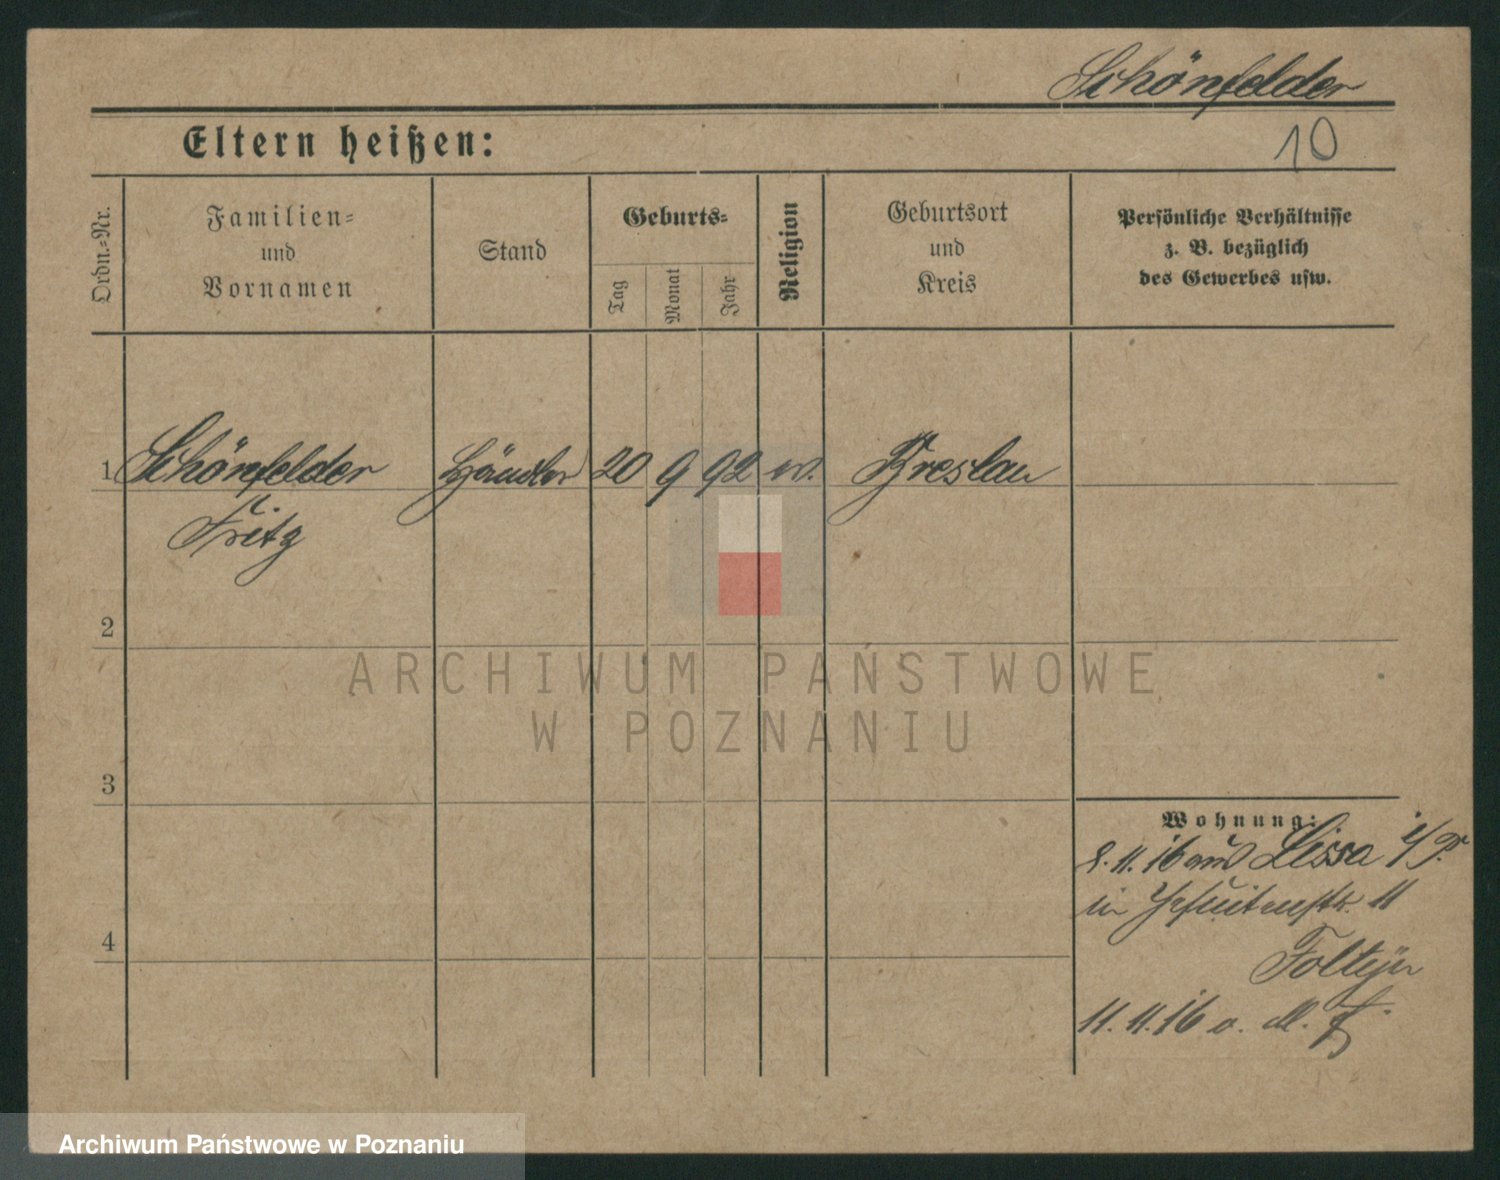 Schönfelder
Eltern heißen:
10
Ordn.-Nr.
Familien-
und
Vornamen
Stand
Geburts-
Tag
Monat
Jahr
Religion
Geburtsort
und
Kreis
Persönliche Verhältnisse
z. B. bezüglich
des Gewerbes usw.
1 Schönfelder Händler 20 9 92 ev. Breslau
Fritz
2
3
4
Wohnung:
8.11.16 aus Lissa i/P.
in Jesuitenstr. 11
11.11.16
ARCHIWUM PAŃSTWOWE
W POZNANIU
Archiwum Państwowe w Poznaniu